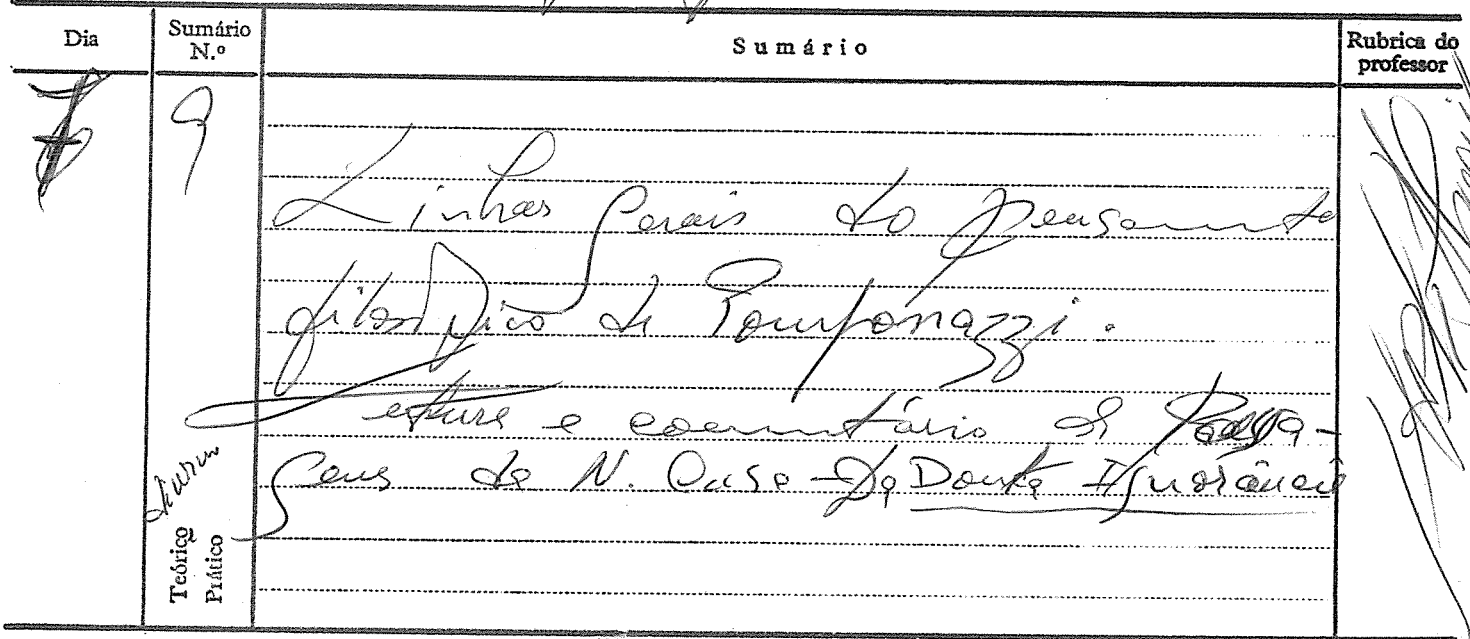 Dia
Sumário N.º
Sumário
Rubrica do professor
9
Linhas gerais do pensamento
filosófico de Pomponazzi.
Leitura e comentário de passa-
gens de N. Cusa - Da Douta Ignorância
Teórico
Prático